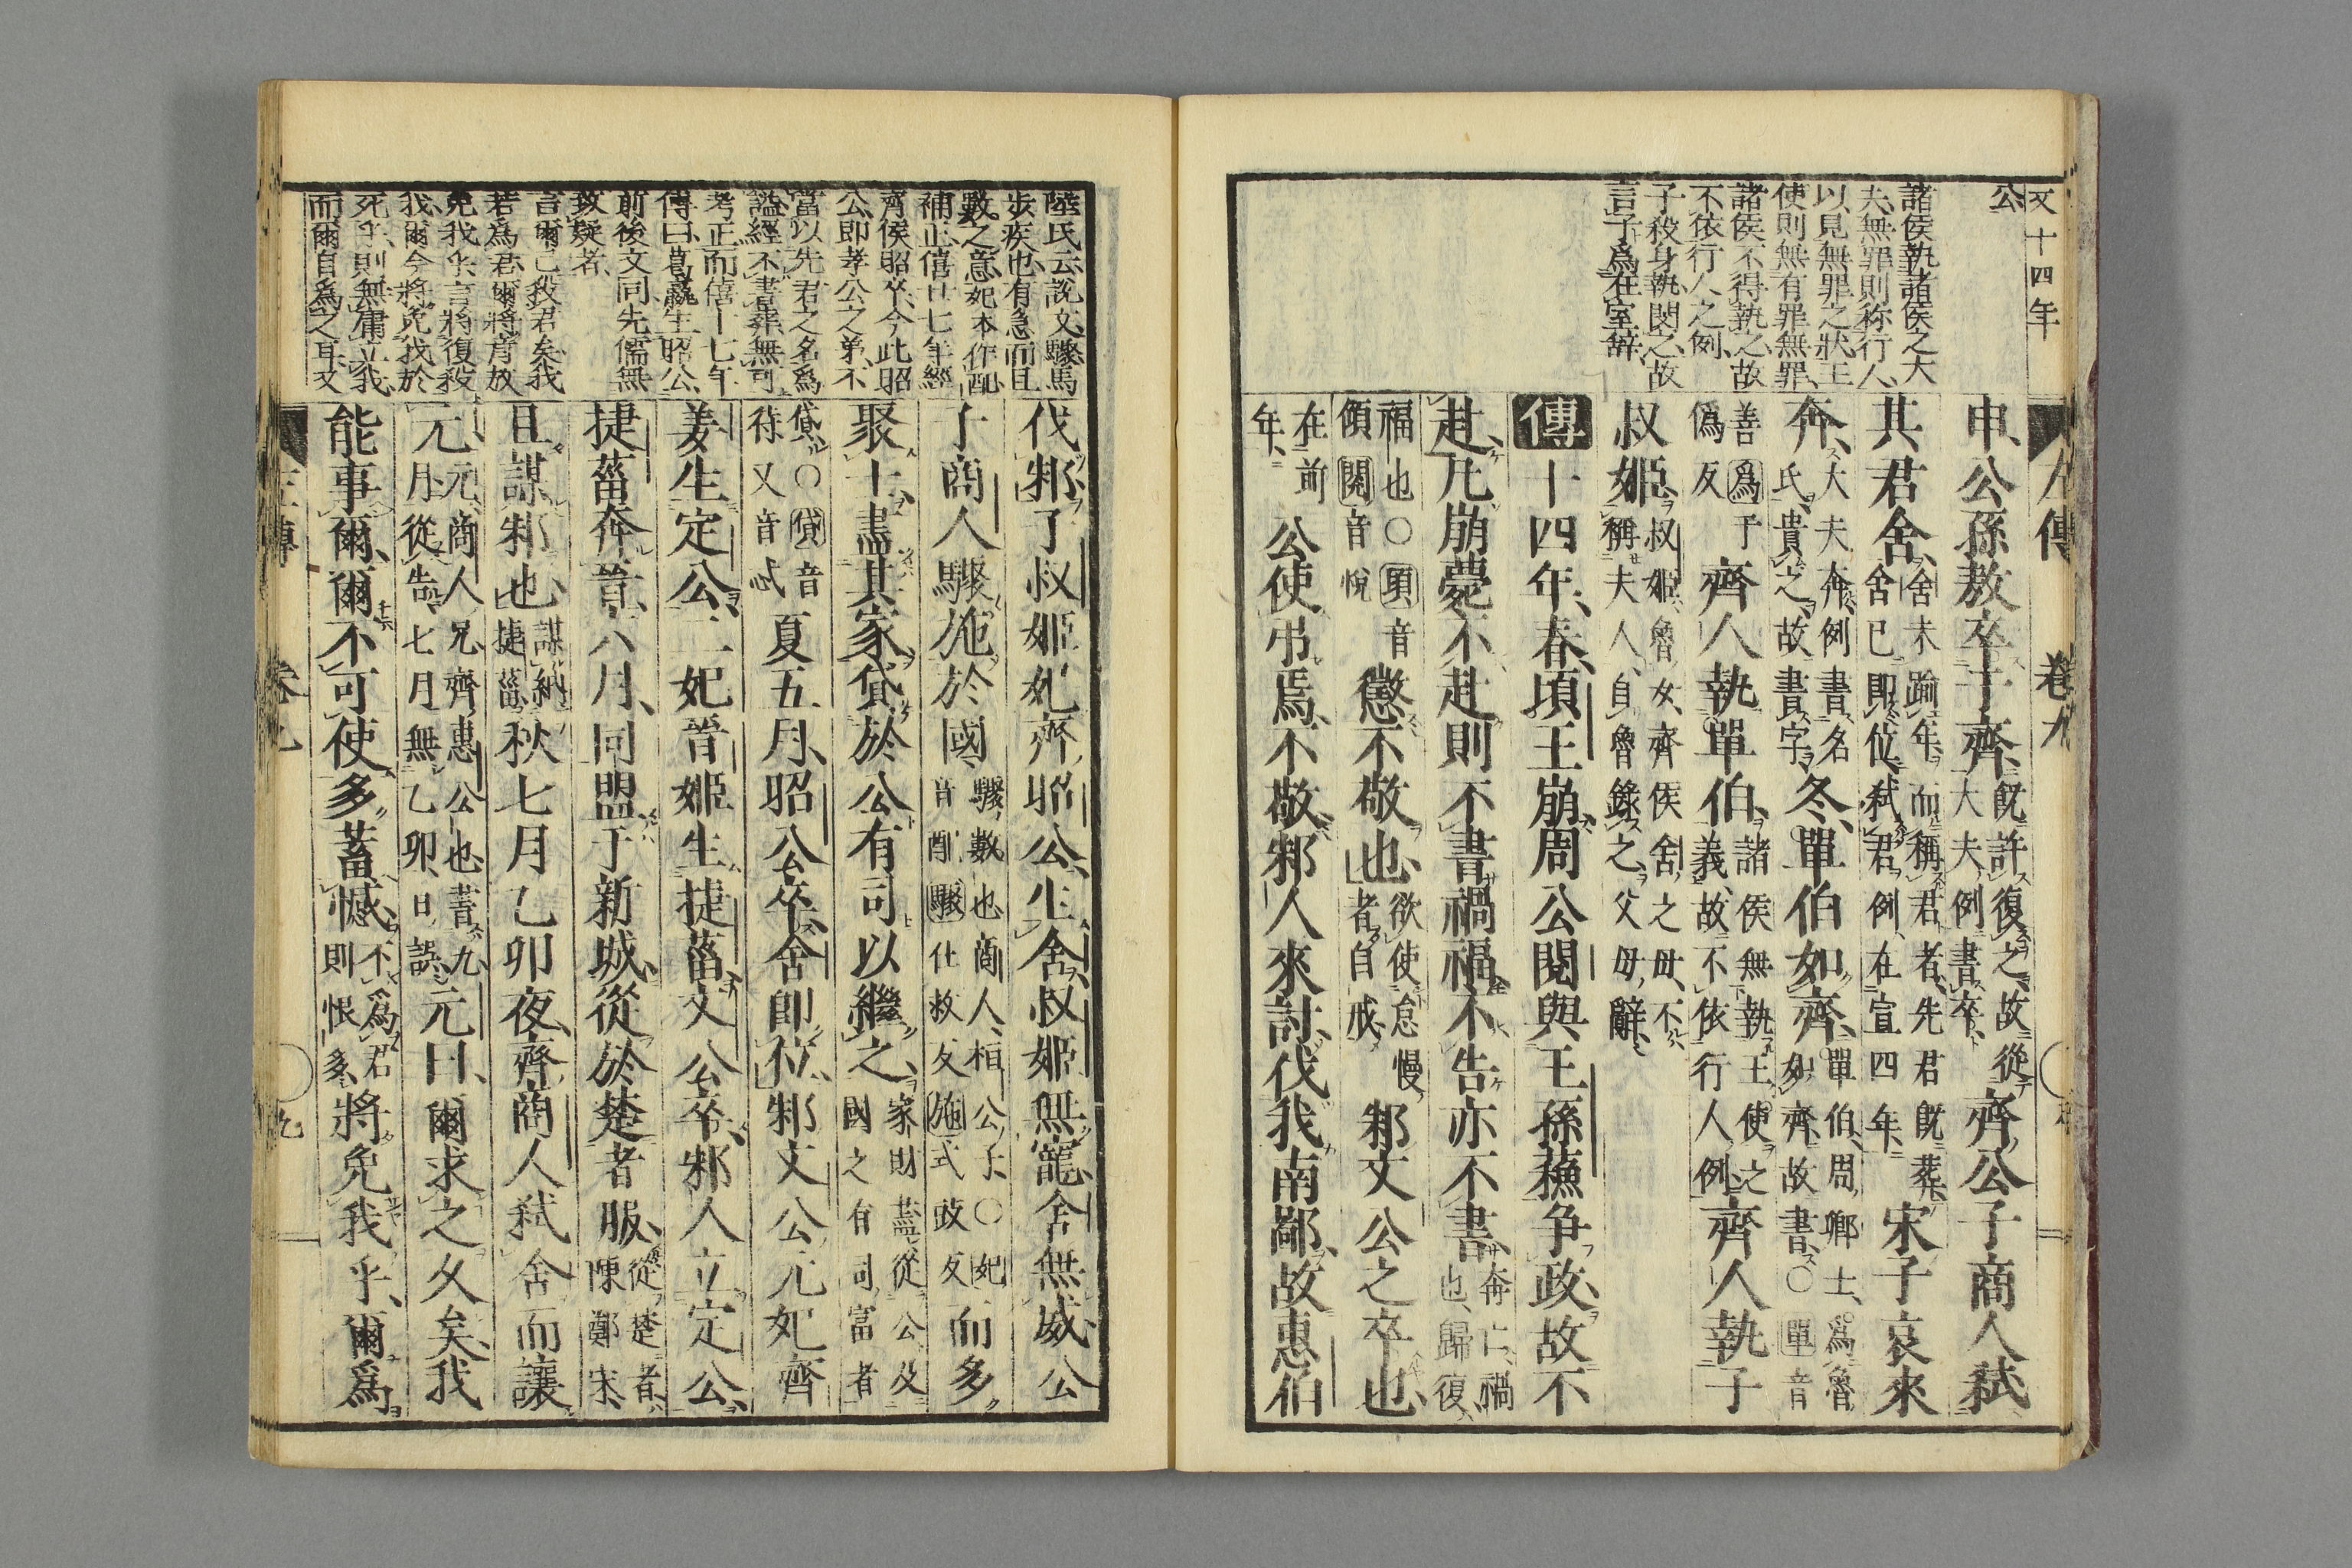 文十四年
公
諸侯執諸侯之大
夫無罪則称行人
以見無罪之狀王
使則無有罪無罪
諸侯不得執之故
不依行人之例
子殺身執閔之故
言子爲在室辞
左傳 卷九
申公孫敖卒于齊既許復之故從大夫例書卒齊公子商人弑
其君舍舍未踰年而稱君者先君既葬舍已即位弑君例在宣四年宋子哀來
奔大夫奔例書名氏貴之故書字冬單伯如齊單伯周卿士爲魯如齊故書○單音
善爲于僞反齊人執單伯諸侯無執王使之義故不依行人例齊人執子
叔姬叔姬魯女齊侯舍之母不稱夫人自魯錄之父母辭
傳十四年春頃王崩周公閱與王孫蘇争政故不
赴凡崩薨不赴則不書禍福不告亦不書奔亡禍也歸復
福也○頃音傾閱音悅懲不敬也欲使怠慢者自戒邾文公之卒也
在前年公使弔焉不敬邾人來討伐我南鄙故惠伯
陸氏云説文驟馬
步疾也有急而且
數之意妃本作配
補正僖廿七年經
齊侯昭卒今此昭
公即孝公之弟不
當以先君之名爲
謚經不書葬無可
考正而僖十七年
傳曰葛嬴生昭公
前後文同先儒無
致疑者
言爾已殺君矣我
若爲君爾將肯放
免我乎言將復殺
我爾今將免我於
死乎則無庸立我
而爾自爲之耳文
伐邾子叔姬妃齊昭公生舍叔姬無寵舍無威公
子商人驟施於國驟數也商人桓公子○妃音配驟仕救反施式豉反而多
聚士盡其家貸於公有司以繼之家財盡從公及國之有司富者
貸○貸音待又音忒夏五月昭公卒舍即位邾文公元妃齊
姜生定公二妃晉姬生捷菑文公卒邾人立定公
捷菑奔晉六月同盟于新城從於楚者服從楚者陳鄭宋
且謀邾也謀納捷菑秋七月乙卯夜齊商人弑舍而讓
元元商人兄齊惠公也書九月從告七月無乙卯日誤元曰爾求之久矣我
能事爾爾不可使多蓄憾不爲君則恨多將免我乎爾爲
左傳 卷九 九